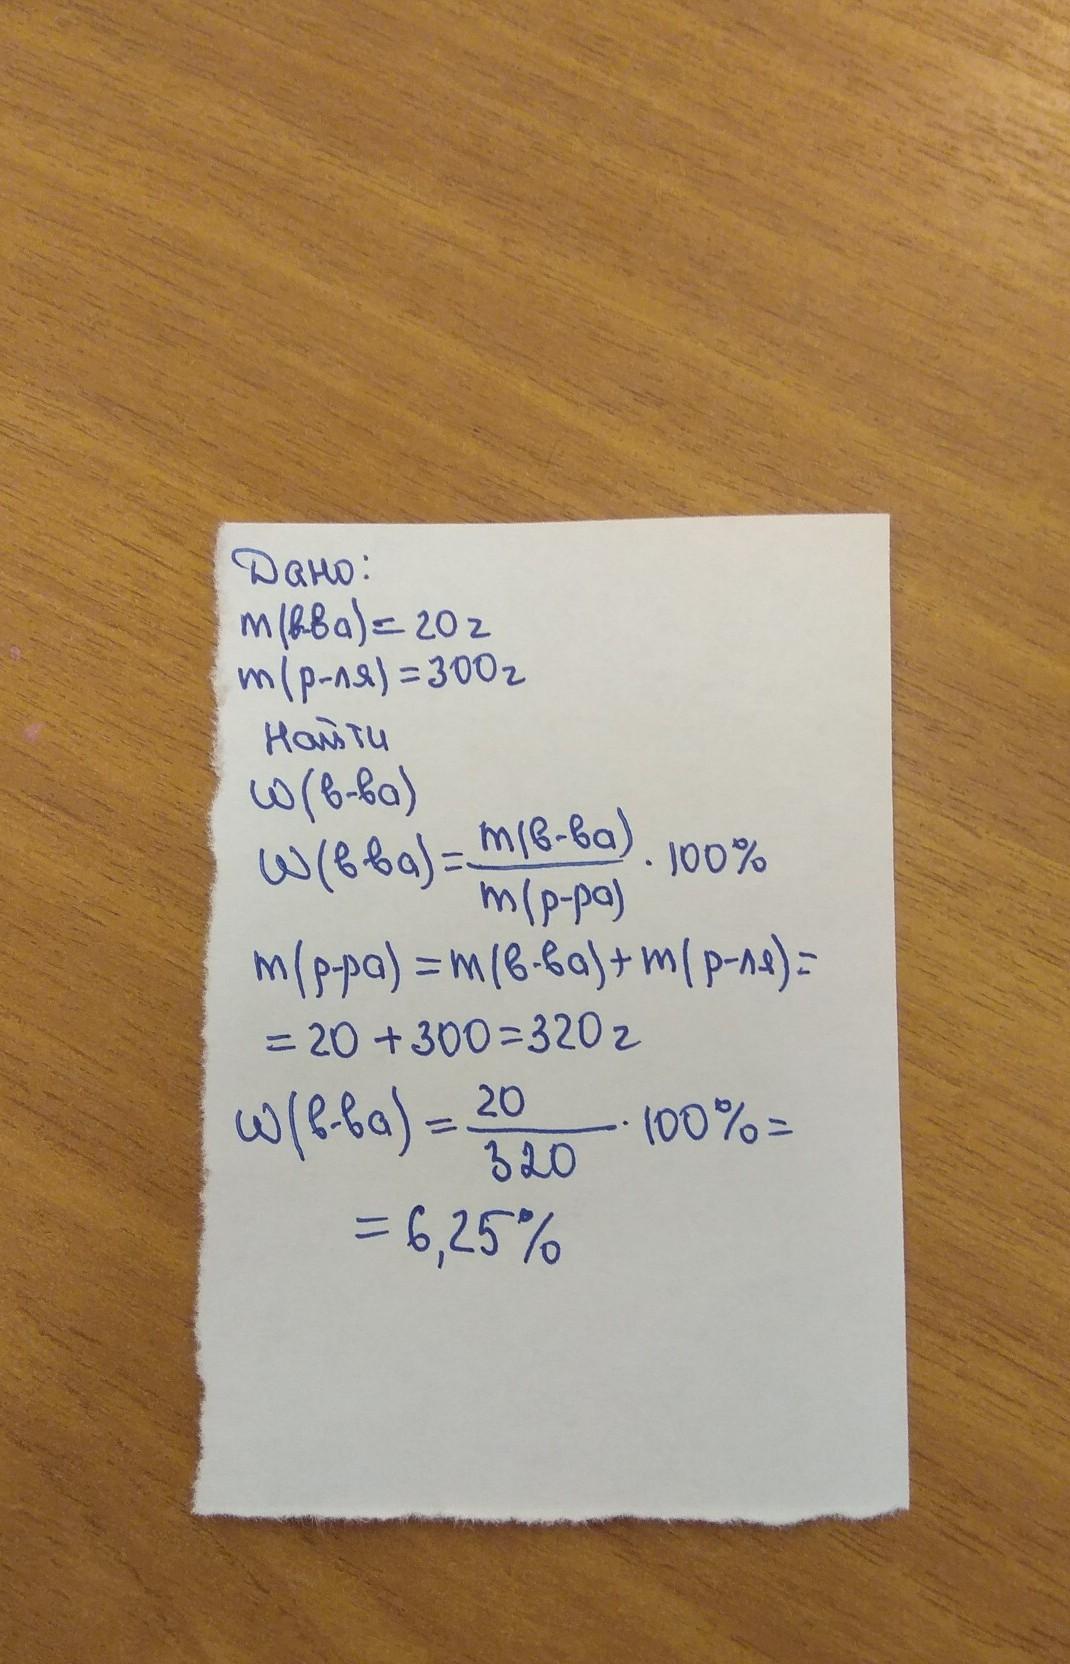 Дано:
m(в-ва)= 20г
m(р-ля)=300г
Найти
ω(в-ва)
ω(в-ва)= m(в-ва)/m(р-ра) · 100%
m(р-ра)=m(в-ва)+m(р-ля)=
=20+300=320г
ω(в-ва)= 20/320 · 100%=
= 6,25%